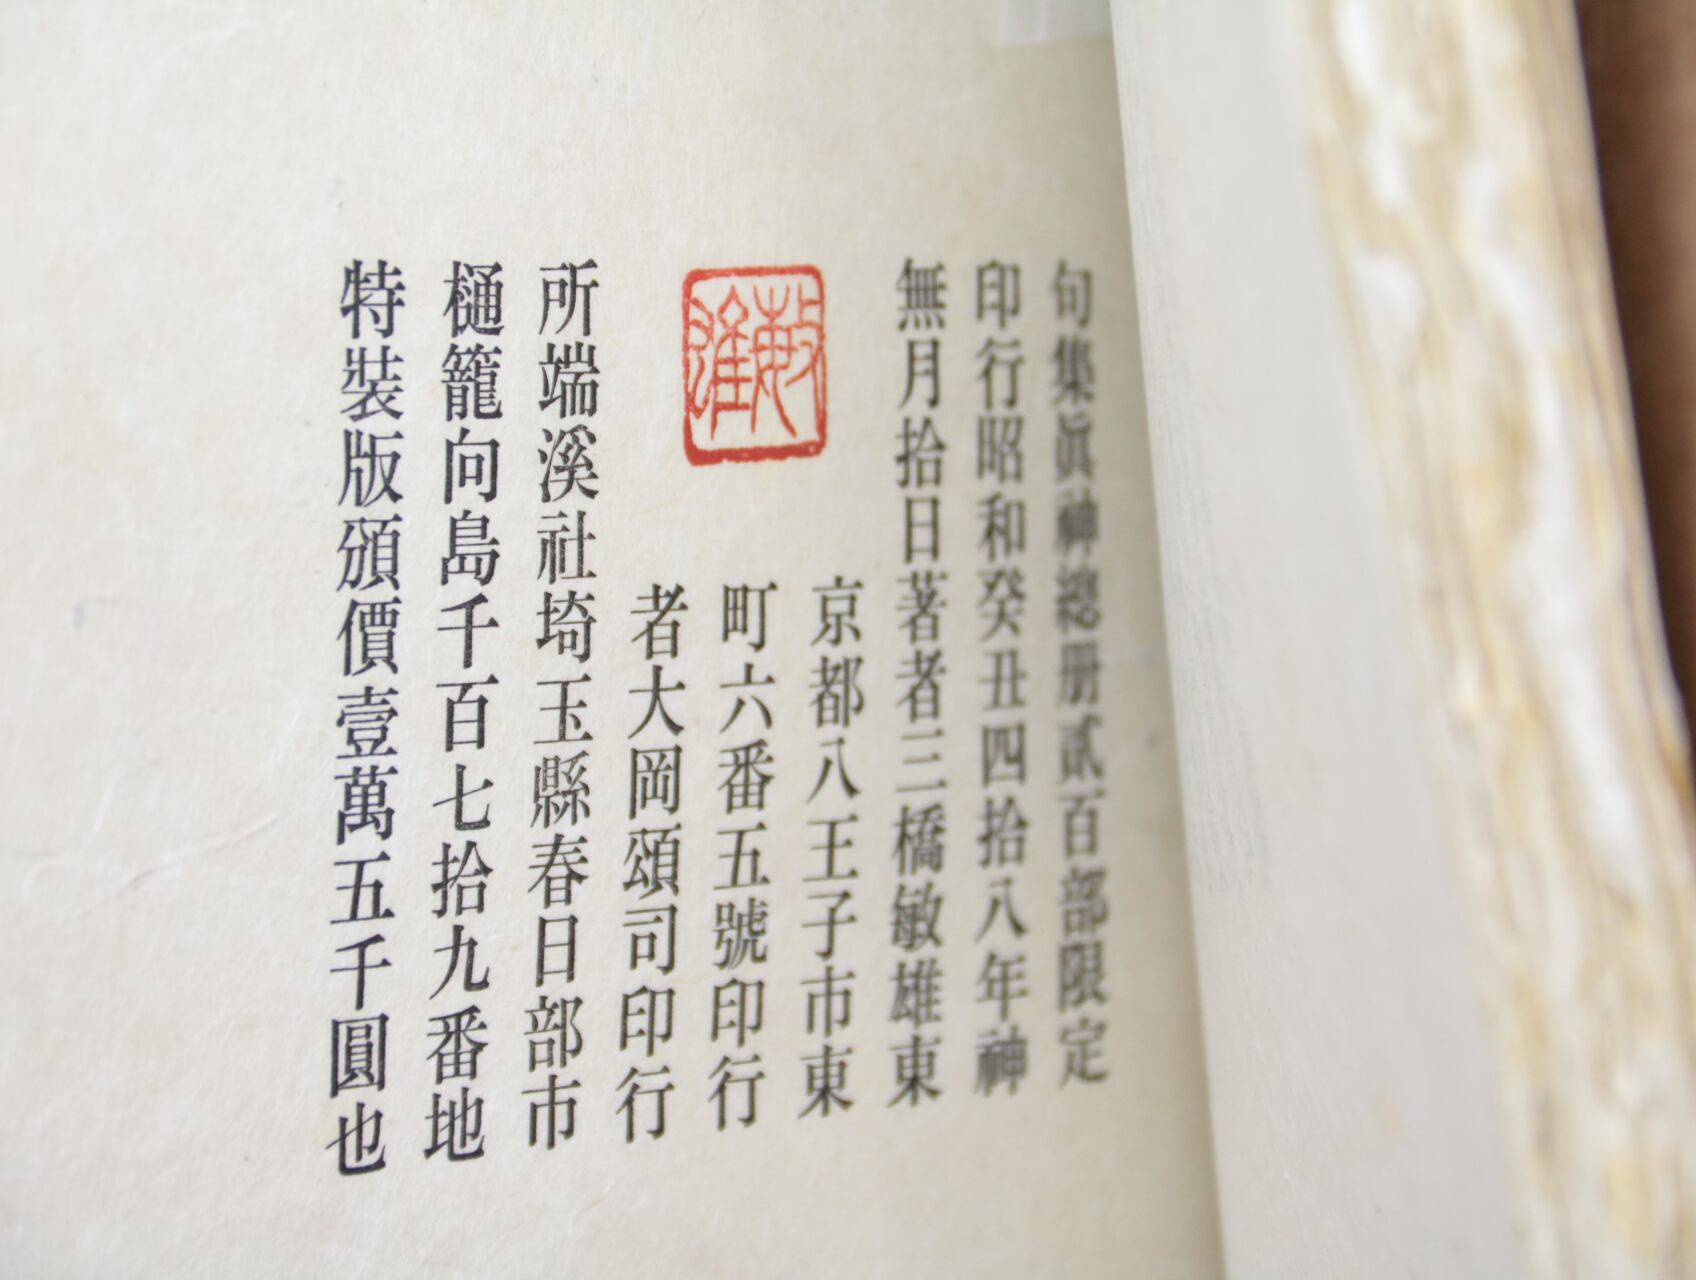 句集眞神總册貳百部限定
印行昭和癸丑四拾八年神
無月拾日著者三橋敏雄東
京都八王子市東
町六番五號印行
者大岡頌司印行
所端溪社埼玉縣春日部市
樋籠向島千百七拾九番地
特裝版頒價壹萬五千圓也
敏雄